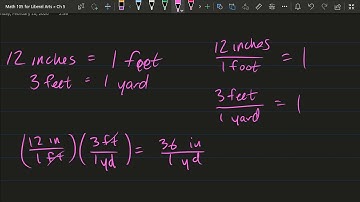 Math 105 for Liberal Arts » Ch 5
12 inches = 1 feet
3 feet = 1 yard
12 inches / 1 foot = 1
3 feet / 1 yard = 1
(12 in / 1 ft)(3 ft / 1 yd) = 36 in / 1 yd